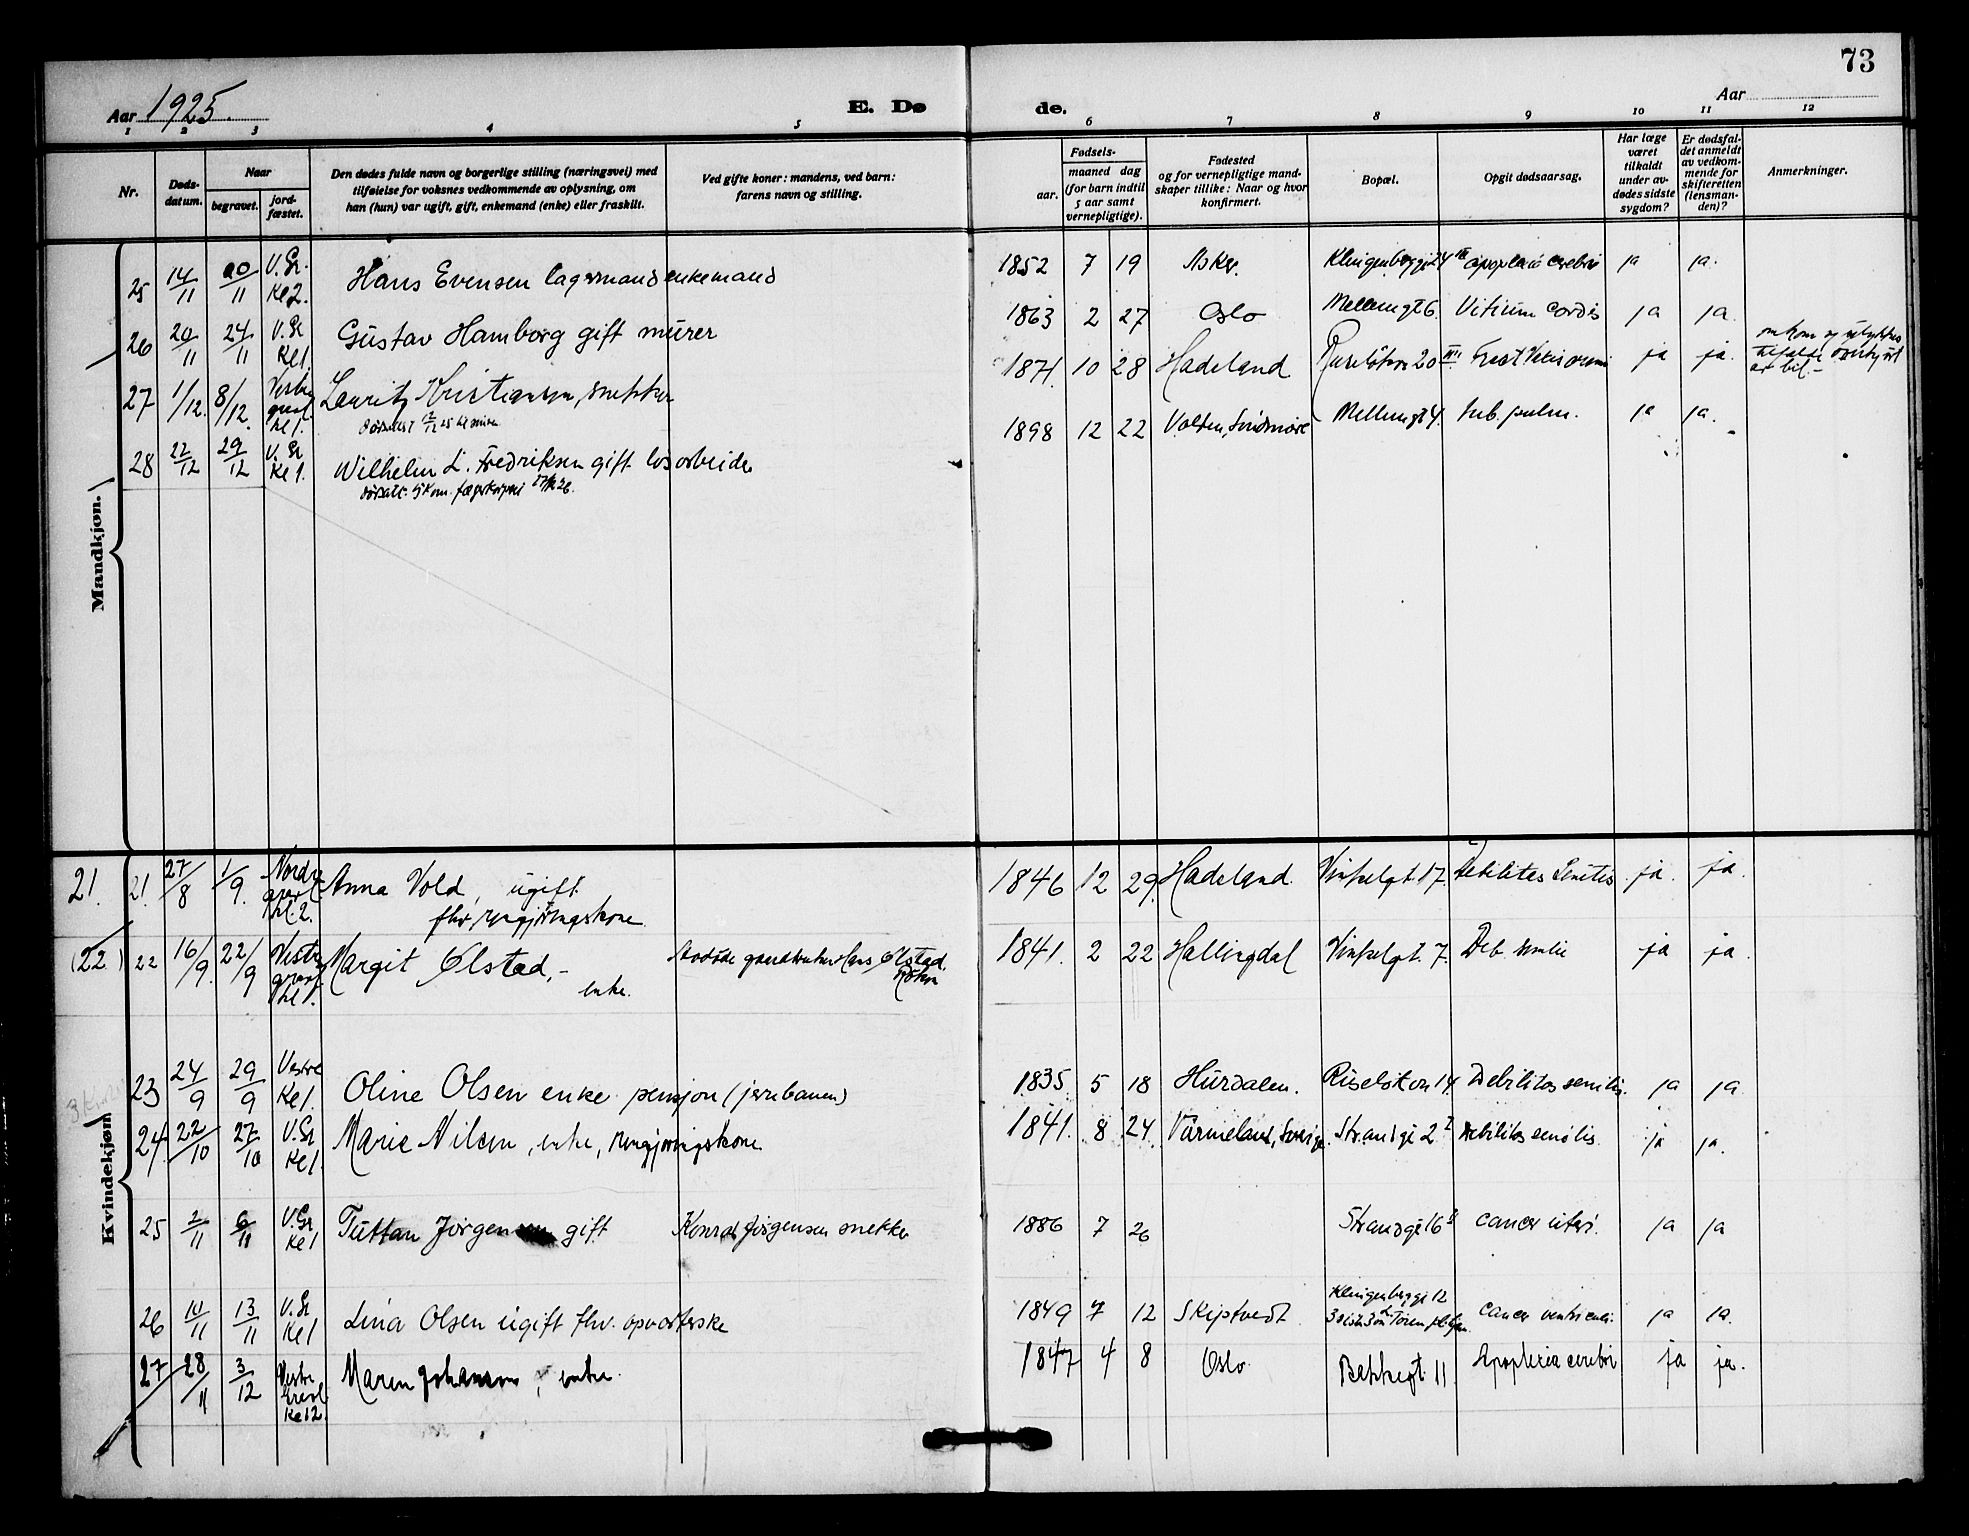 73
Aar 1925.
E. Dø
de.
Aar
1 2 3 4 5 6 7 8 9 10 11 12
Nr.
Døds-
datum.
Naar
begravet.
jord-
fæstet.
Den dødes fulde navn og borgerlige stilling (næringsvei) med
tilføielse for voksnes vedkommende av oplysning, om
han (hun) var ugift, gift, enkemand (enke) eller fraskilt.
Ved gifte koner: mandens, ved barn:
farens navn og stilling.
Fødsels-
aar.
maaned dag
(for barn indtil
5 aar samt
vernepligtige).
Fødested
og for vernepligtige mand-
skaper tillike: Naar og hvor
konfirmert.
Bopæl.
Opgit dødsaarsag.
Har læge
været
tilkaldt
under av-
dødes sidste
sygdom?
Er dødsfal-
det anmeldt
av vedkom-
mende for
skifteretten
(lensman-
den)?
Anmerkninger.
Mandkjøn.
25 14/11 20/11 V. Gr. Kl 2. Hans Evensen lagermand enkemand 1852 7 19 Asker. Klingenberggt 24 III apoplexia cerebri ja ja.
26 20/11 24/11 V. Gr Kl 1. Gustav Hamborg gift murer 1863 2 27 Oslo Mellemgt 6. Vitium cordis ja ja.
27 1/12. 8/12. Vestre gravl. Kl 1. Lauritz Kristiansen, snekker 1871. 10 28 Hadeland 20 III. ja ja. av bil. –
28 22/12 29/12 V. Gr Kl 1. Wilhelm L. Fredriksen gift løsarbeider 1898 12 22 Volden, Søndmøre Mellemgt 4. tub. pulm. ja ja.
Kvindekjøn
21. 21. 27/8 1/9. Nordre gravl. Kl. 2. Anna Vold, ugift 1846 12 29. Hadeland. Vinkelgt. 17. Debilitas senilis ja. ja.
fhv. rengjøringskone
(22) 22 16/9. 22/9 Vestre gravl Kl 1. Margit Ølstad, – enke. Avdøde gaardbruker Hans Ølstad, Røken 1841. 2 22 Hallingdal Vinkelgt. 7. Deb. senilis ja ja.
23 24/9 29/9 Vestre Kl 1. Oline Olsen enke pensjon (jernbanen) 1835. 5 18 Hurdalen. Ruseløkvn 14. Debilitas senilis. ja ja
24 22/10 27/10 V. Gr Kl 1. Marie Nilsen, enke, rengjøringskone 1841. 8 24. Värmeland, Sverige Strandgt 2 I Debilitas senilis. ja ja.
25 2/11 6/11 V. Gr Kl 1 Tuttan Jørgensen gift Konrad Jørgensen snekker 1886 7 26 Strandgt 16 II cancer uteri. ja ja
26 10/11 13/11 V. Gr Kl 1 Lina Olsen ugift fhv. opvarterske 1849 7 12 Skiptvedt Klingenberggt 12 cancer ventriculi. ja ja.
27 28/11 3/12 Vestre Gravl. Kl 2. Maren Johansen, enke. 1847 4 8 Oslo. Bakkegt. 11 Apoplexia cerebri ja ja.